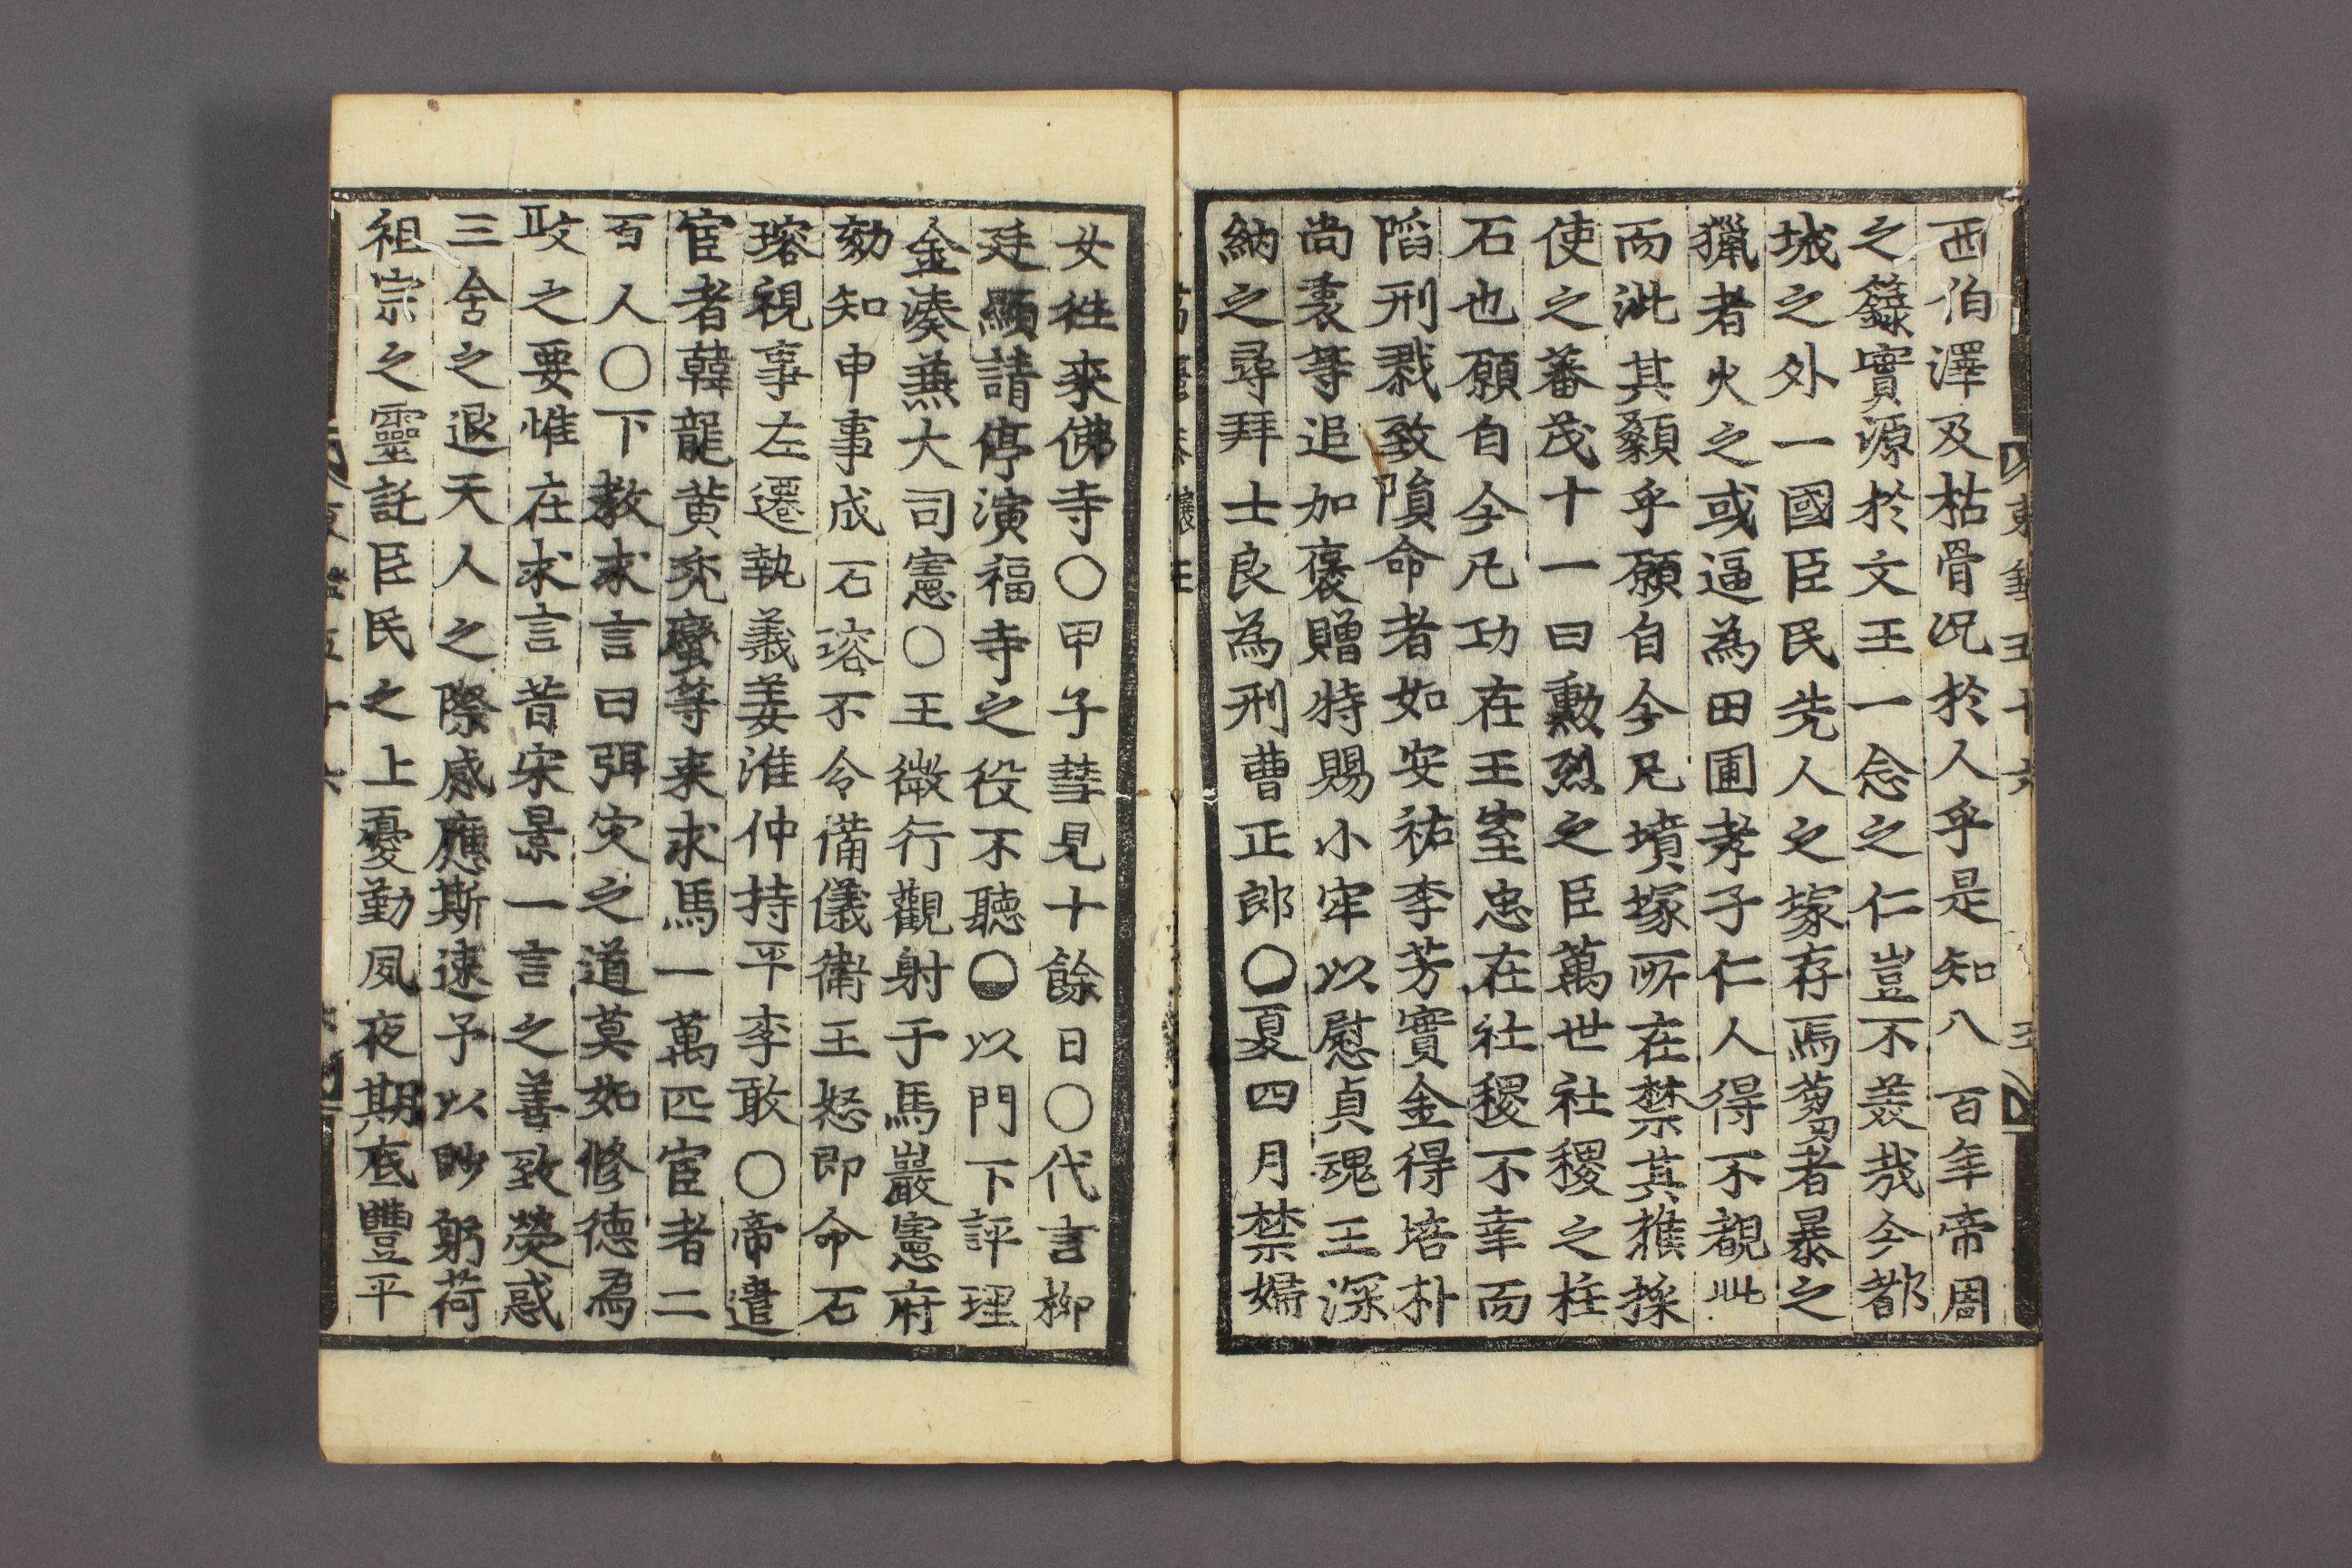 西伯澤及枯骨況於人乎是知八百年帝周
之籙實源於文王一念之仁豈不羡哉今都
城之外一國臣民先人之塚存焉蒭者暴之
獵者火之或逼為田圃孝子仁人得不覩此
而泚其顙乎願自今凡墳塚所在禁其樵採
使之蕃茂十一曰勳烈之臣萬世社稷之柱
石也願自今凡功在王室忠在社稷不幸而
陷刑戮致隕命者如安祐李芳實金得培朴
尚衷等追加褒贈特賜小牢以慰貞魂王深
納之尋拜士良為刑曹正郎○夏四月禁婦
女往來佛寺○甲子彗見十餘日○代言柳
廷顯請停演福寺之役不聽○以門下評理
金湊兼大司憲○王微行觀射于馬巖憲府
劾知申事成石瑢不令備儀衛王怒即命石
瑢視事左遷執義姜淮仲持平李敢○帝遣
宦者韓龍黄禿蠻等来求馬一萬匹宦者二
百人○下教求言曰弭灾之道莫如修德爲
政之要惟在求言昔宋景一言之善致熒惑
三舍之退天人之際感應斯速予以眇躬荷
祖宗之靈託臣民之上憂勤夙夜期底豐平